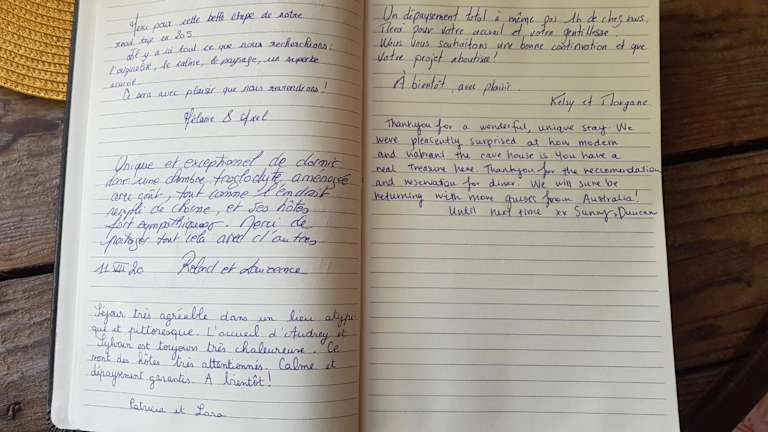 Merci pour cette belle étape de notre
road trip en 205
il y a ici tout ce que nous recherchions:
L'originalité, le calme, le paysage, un superbe
accueil
Ce sera avec plaisir que nous reviendrons!
Mélanie & Axel
Unique et exceptionnel de dormir
dans une chambre troglodyte aménagée
avec goût, tout comme l'endroit
rempli de charme, et ses hôtes
fort sympathiques. Merci de
partager tout cela avec d'autres
11 VII 20 Roland et Laurence
Séjour très agréable dans un lieu atypi-
que et pittoresque. L'accueil d'Audrey et
Sylvain est toujours très chaleureux. Ce
sont des hôtes très attentionnés. Calme et
dépaysement garantis. A bientôt!
Patricia et Lara
Un dépaysement total à même pas 1h de chez nous.
Merci pour votre accueil et votre gentillesse.
Nous vous souhaitons une bonne continuation et que
votre projet aboutisse!
À bientôt, avec plaisir.
Kelly et Morgane
Thankyou for a wonderful, unique stay. We
were pleasently surprised at how modern
and vabrant the cave house is. You have a
real treasure here. Thankyou for the reccomendation
and reservation for diner. We will sure be
returning with more guises from Australia!
Until next time xx Sunny & Duncan